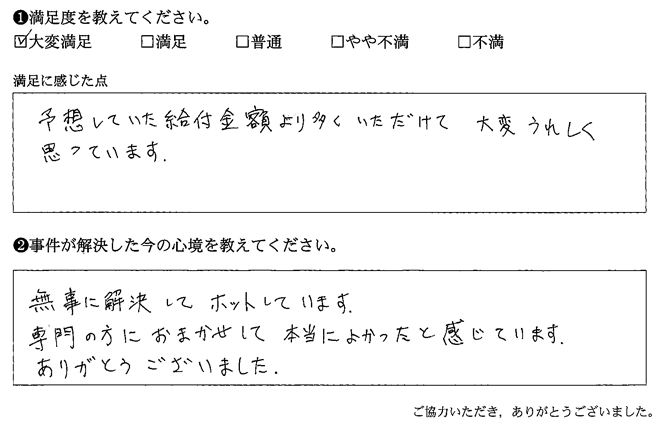 ❶満足度を教えてください。
☑大変満足 □満足 □普通 □やや不満 □不満
満足に感じた点
予想していた給付金額より多くいただけて 大変うれしく
思っています.
❷事件が解決した今の心境を教えてください。
無事に解決して ホットしています.
専門の方に おまかせして 本当によかったと感じています.
ありがとう ございました.
ご協力いただき，ありがとうございました。